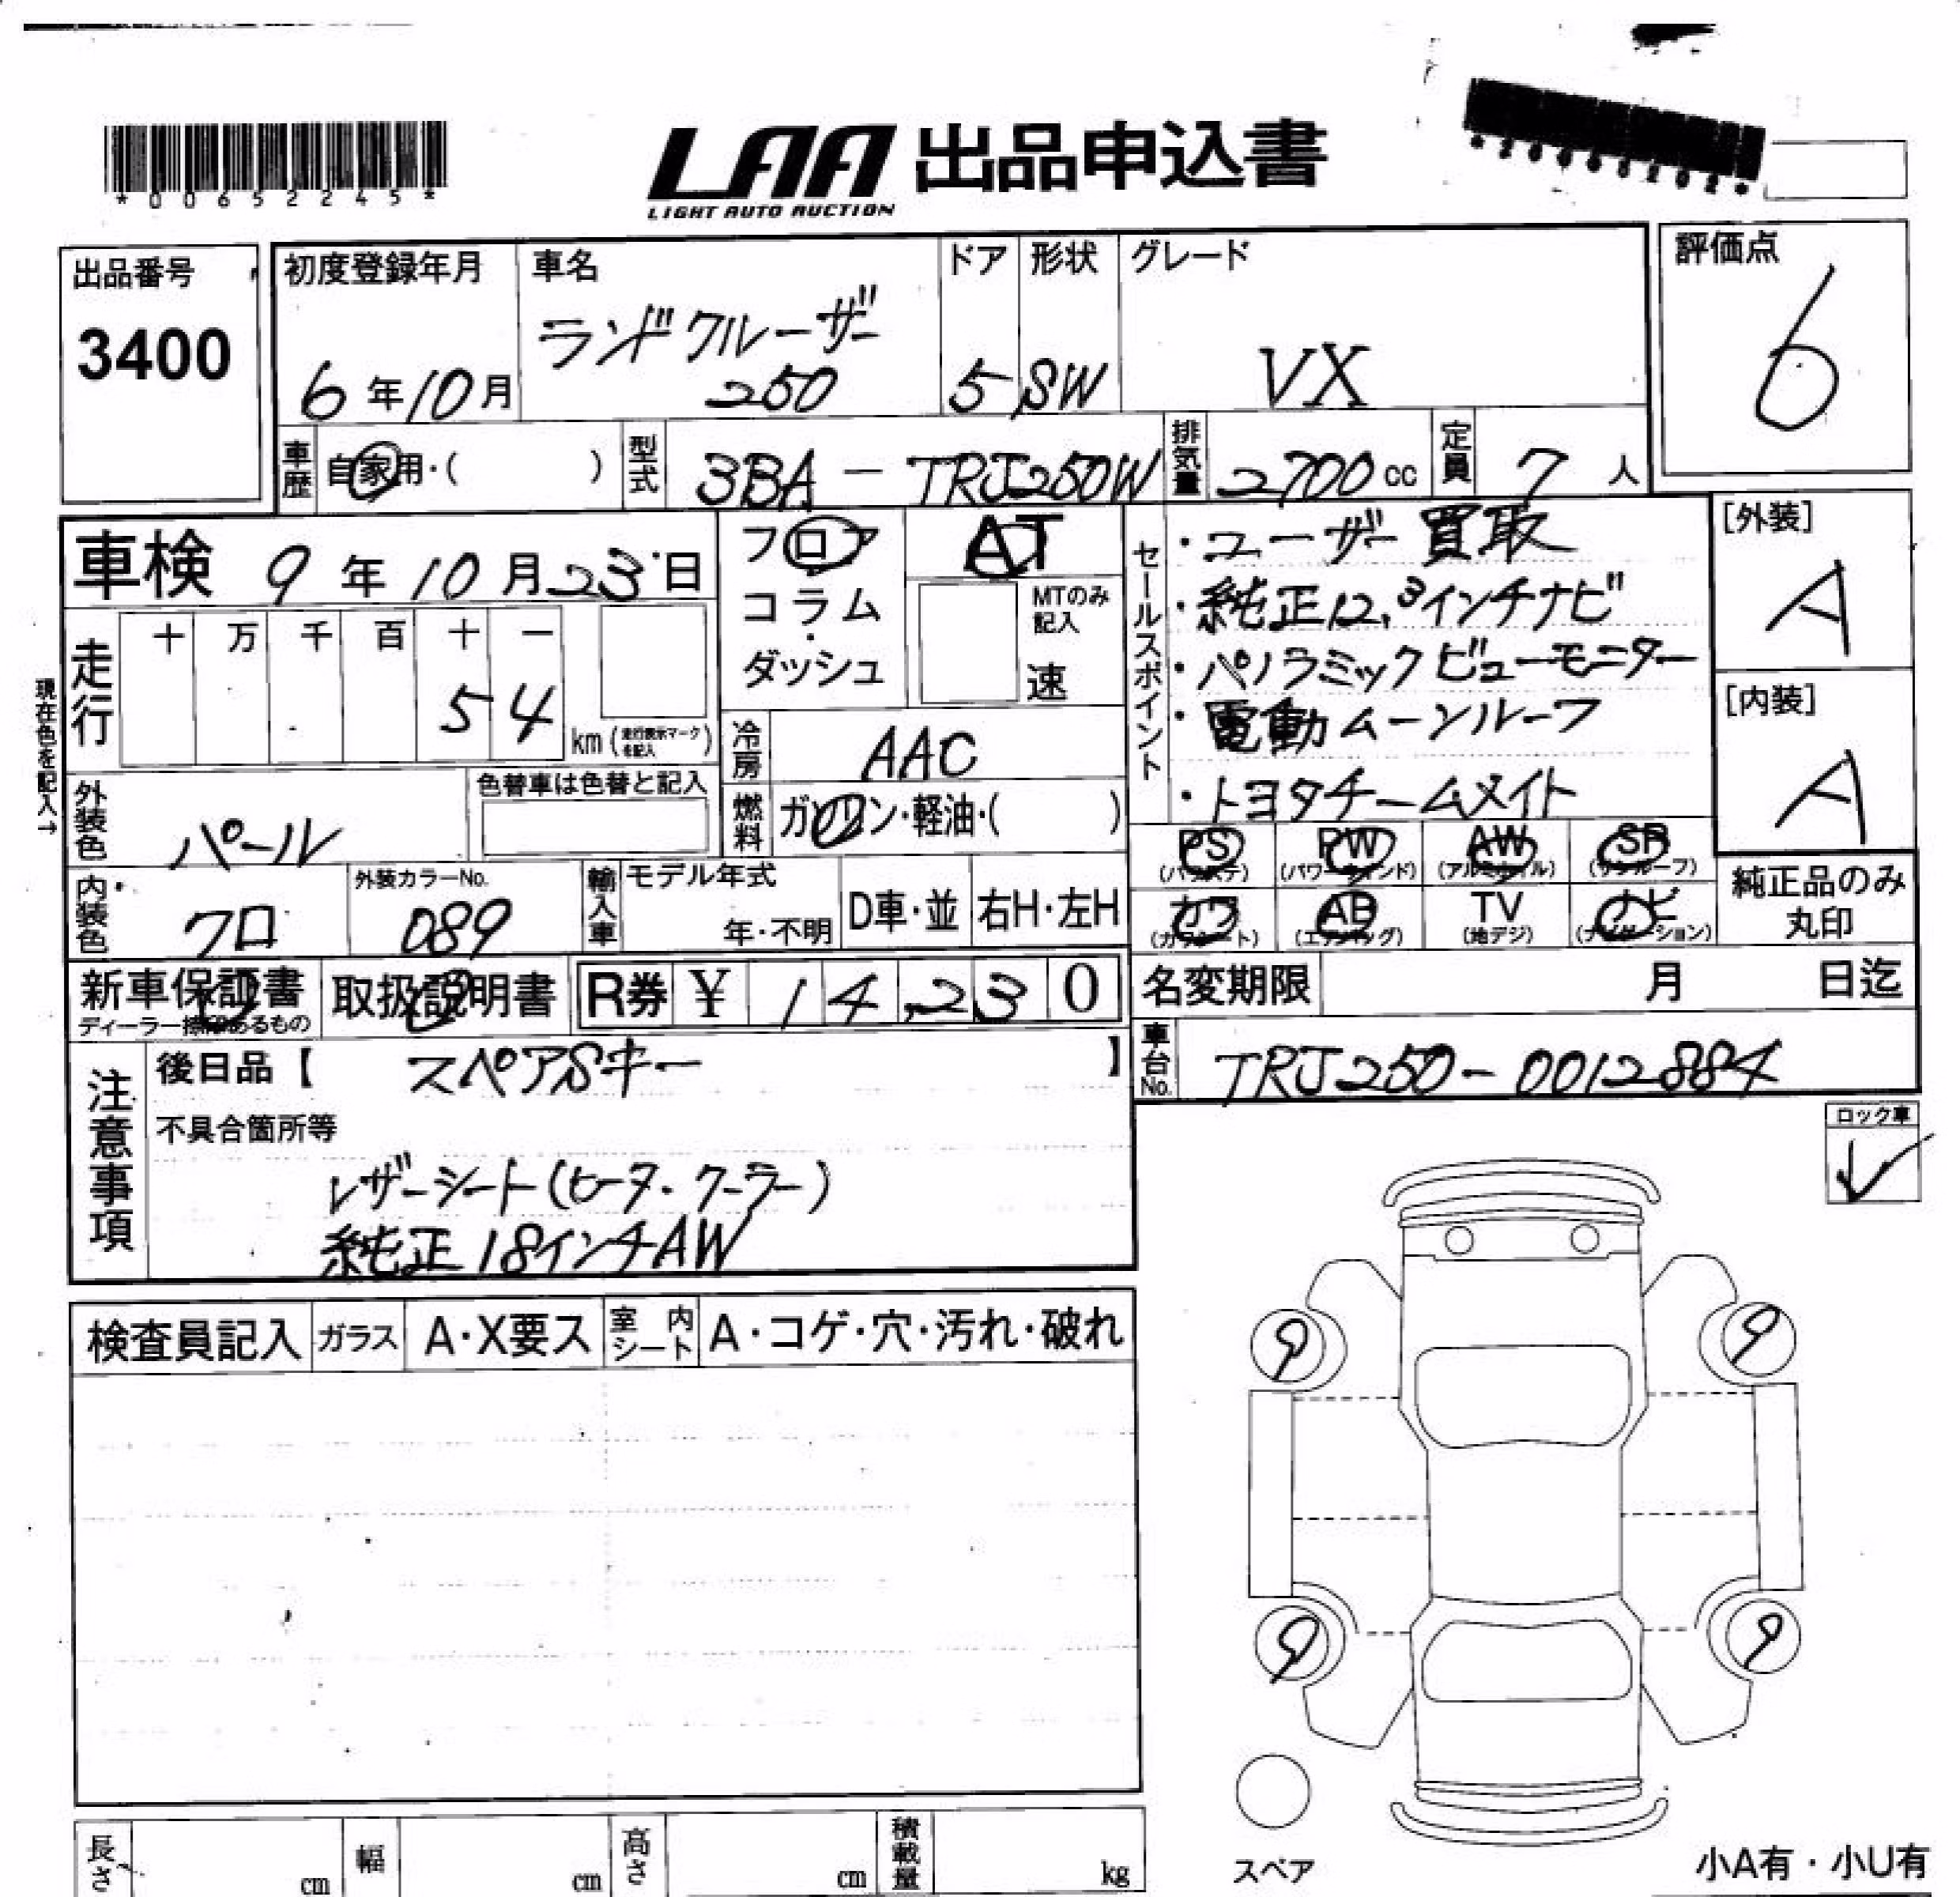 *00652245*
LAA 出品申込書
LIGHT AUTO AUCTION
出品番号
3400
初度登録年月
6年10月
車名
ランドクルーザー
250
ドア
5
形状
SW
グレード
VX
評価点
6
車歴
自家用・( )
型式
3BA-TRJ250W
排気量
2700cc
定員
7人
車検 9年10月23日
フロア
コラム
・
ダッシュ
AT
MTのみ
記入
速
セールスポイント
・ユーザー買取
・純正12.3インチナビ
・パノラミックビューモニター
・電動ムーンルーフ
・トヨタチームメイト
[外装]
A
[内装]
A
現在色を記入→
走行
十 万 千 百 十 一
5 4
km(走行表示マークを記入)
冷房
AAC
燃料
ガソリン・軽油・( )
外装色
パール
色替車は色替と記入
内装色
クロ
外装カラーNo.
089
輸入車
モデル年式
年・不明
D車・並
右H・左H
PS
(パワステ)
PW
(パワーウインド)
AW
(アルミホイル)
SR
(サンルーフ)
カワ
(カワシート)
AB
(エアバッグ)
TV
(地デジ)
ナビ
(ナビゲーション)
純正品のみ
丸印
新車保証書
ディーラー捺印あるもの
取扱説明書
R券 ¥ 14,230
名変期限 月 日迄
車台No.
TRJ250-0012884
注意事項
後日品【 スペアSキー 】
不具合箇所等
レザーシート(ヒータ・クーラー)
純正18インチAW
ロック車
検査員記入
ガラス
A・X要ス
室内シート
A・コゲ・穴・汚れ・破れ
9
9
9
9
スペア
長さ cm
幅 cm
高さ cm
積載量 kg
小A有・小U有